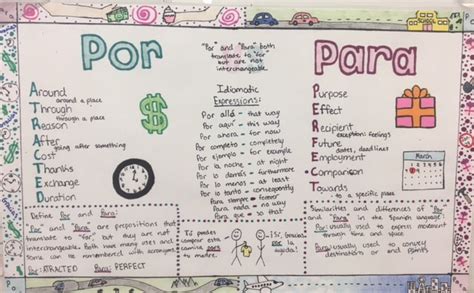 Por
Around
around a place
Through
through a place
Reason
After
going after something
Cost
Thanks
Exchange
Duration
"Por" and "Para" both
translate to "for"
but are not
interchangeable.
Idiomatic
Expressions:
Por allá - that way
Por aquí - this way
Por ahora - for now
Por completo - completely
Por ejemplo - for example
Por la noche - at night
Por lo demás - furthermore
Por lo menos - at least
Por lo tanto - consequently
Para siempre - forever
Para nada - no way
Para que - so that
Para
Purpose
Effect
Recipient
Future
dates, deadlines
Employment
Comparison
Towards
to a specific place
March
SCHOOL
Define Por and Para:
Por and Para are prepositions that
translate to "for", but they are not
interchangeable. Both have many uses and
some can be remembered with acronyms
Por: ATRACTED Para: PERFECT
Tú puedes
comprar esta
camisa para
tu madre.
¡Sí, gracias
por la
ayuda!
Similarities and differences of "Por"
and "Para" in the Spanish language:
Por: usually used to express movement
through time and space
Para: usually used to convey
destination or end points